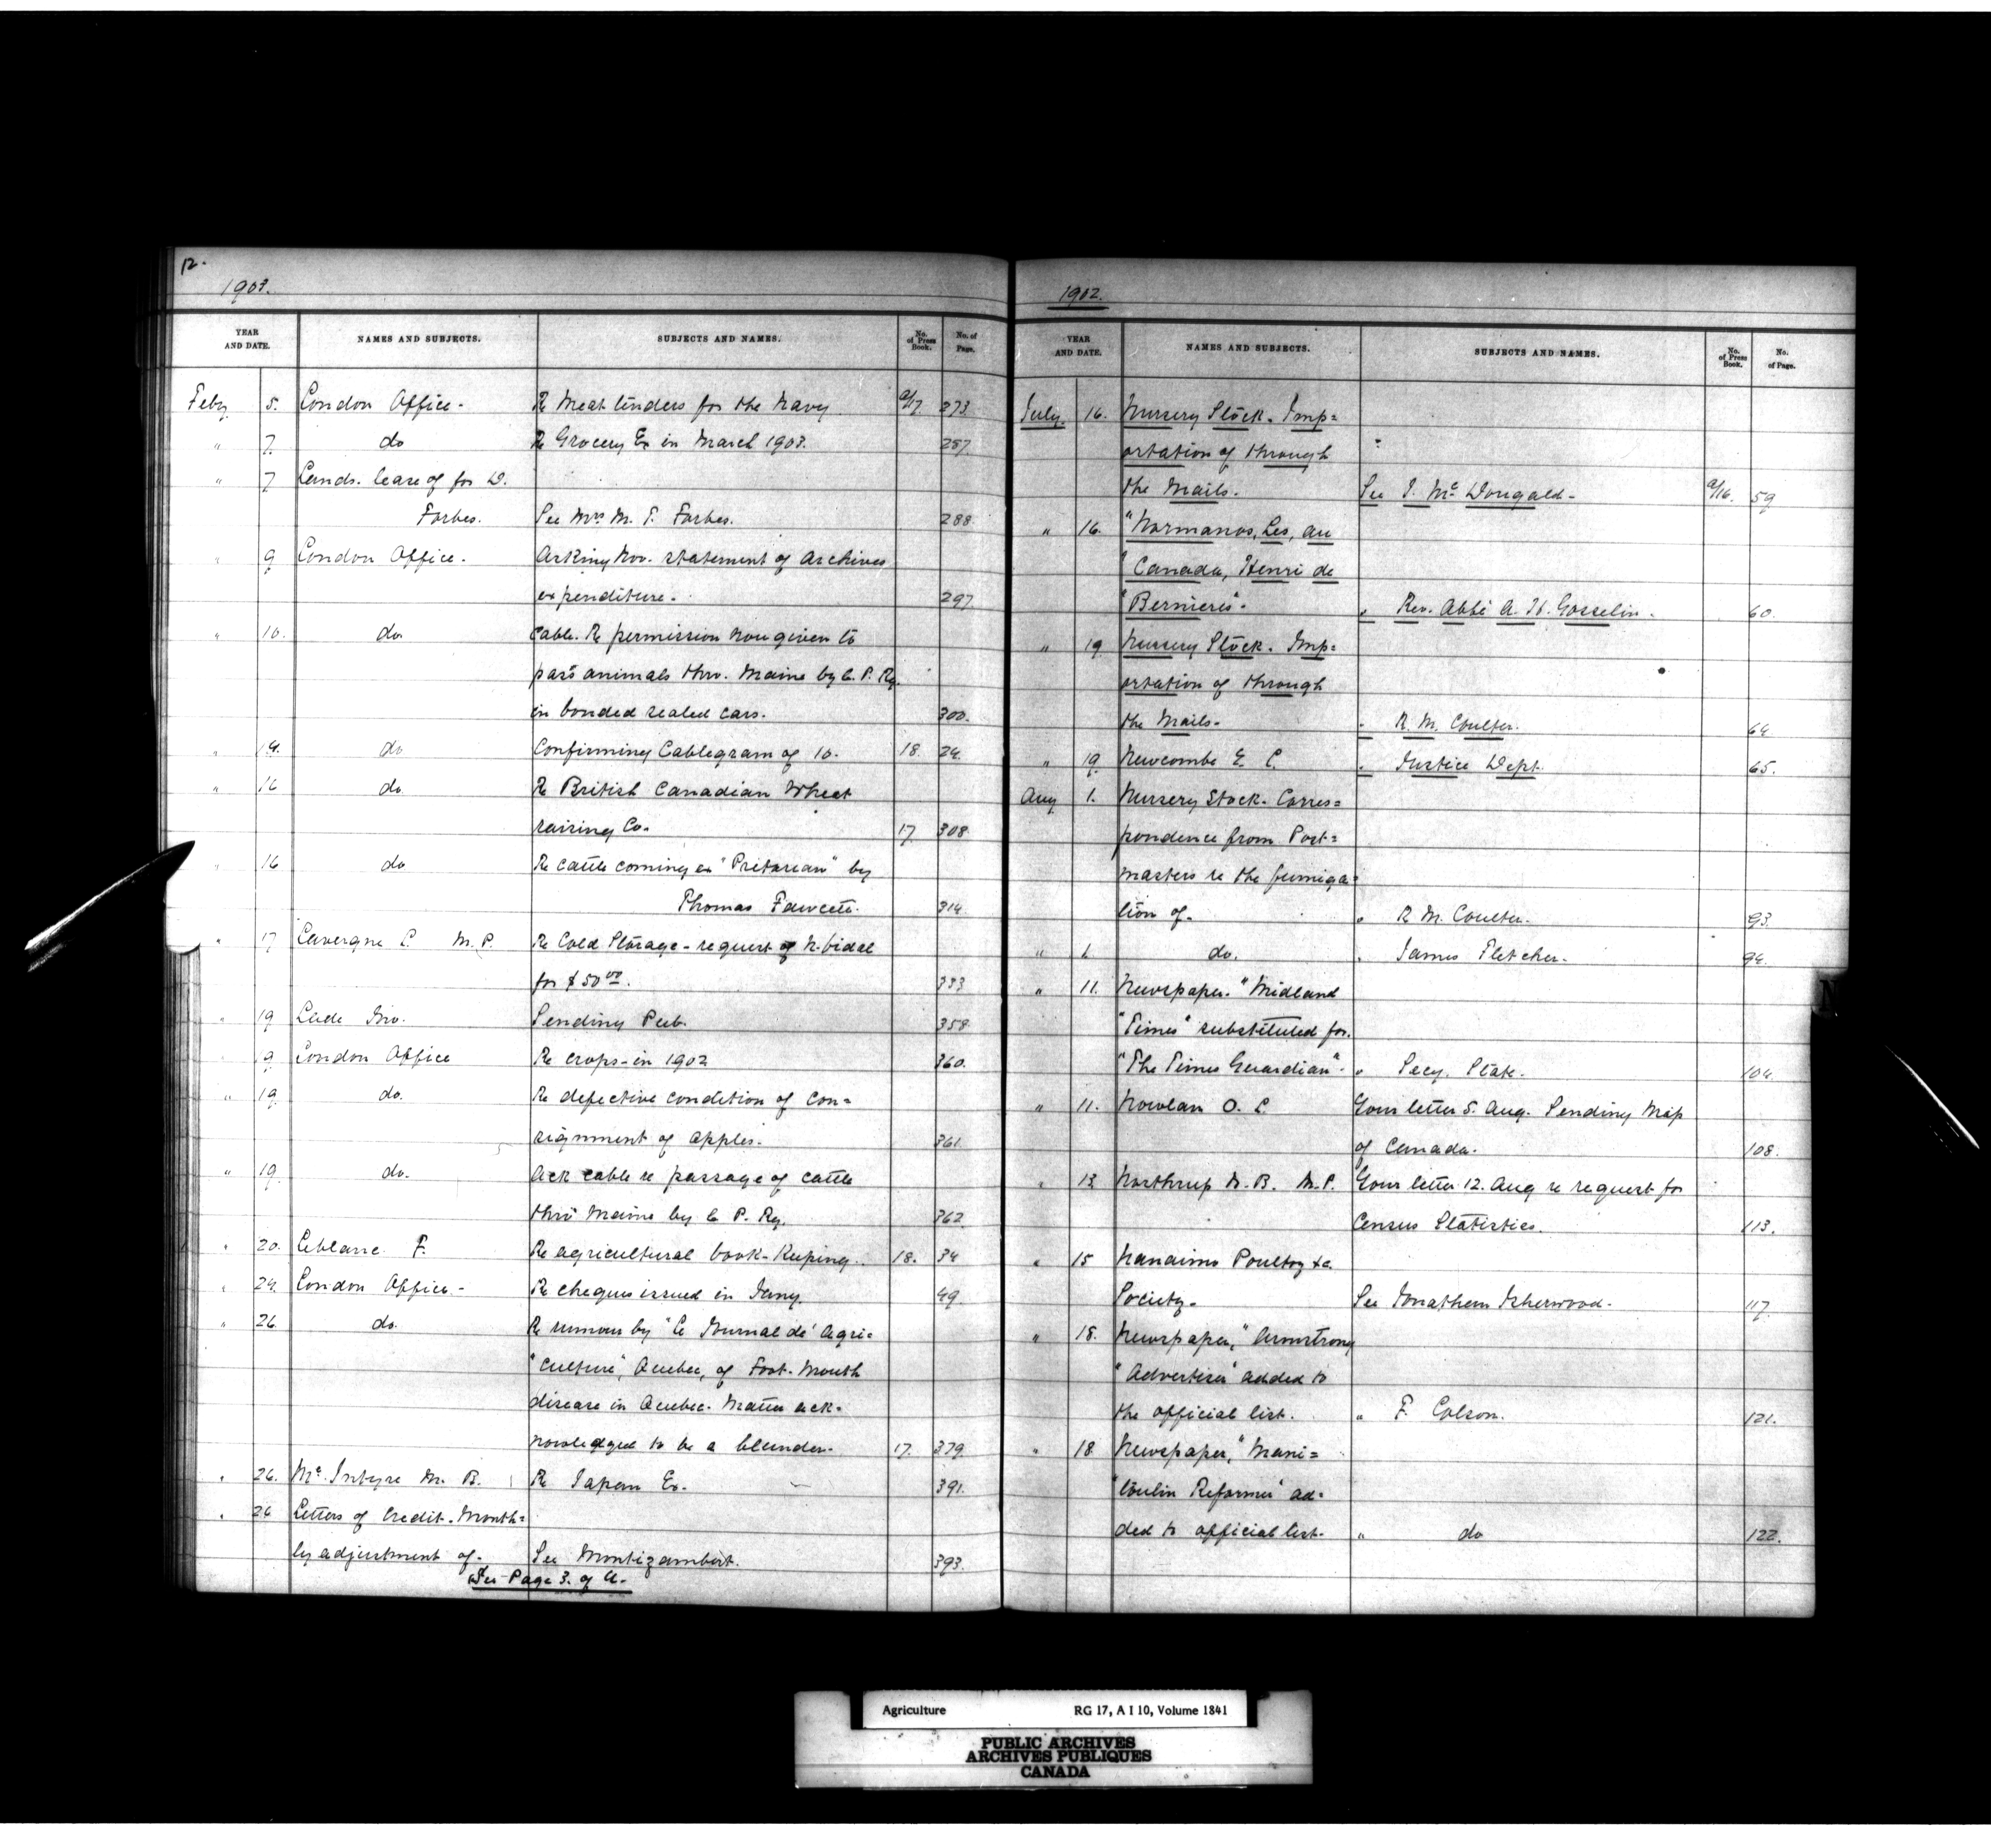 12.
1903.
YEAR AND DATE. NAMES AND SUBJECTS. SUBJECTS AND NAMES. No. of Press Book. No. of Page.
Feby 5. London Office - Re Meat tenders for the Navy a/17 273
" 7. do Re Grocery Ex in March 1903. 287
" 7 Lands. lease of for D.
Forbes. See Mrs M. T. Forbes. 288
" 9 London Office. Asking Nov. statement of Archives
expenditure. 297
" 10. do Cable. Re permission now given to
pass animals thro. Maine by C. P. Ry.
in bonded sealed cars. 300.
" 14. do Confirming Cablegram of 10. 18. 24.
" 16 do Re British Canadian Wheat
raising Co. 17 308
" 16 do Re cattle coming ex "Pretorian" by
Thomas Fawcett. 314
" 17 Lavergne L. M.P. Re Cold Storage - request of N. Vidal
for $50 00. 333
" 19 Lude Geo. Sending Pub. 358
" 9 London Office Re crops - in 1902 360.
" 19 do. Re defective condition of con=
signment of apples. 361
" 19. do. Ack cable re passage of cattle
thro' Maine by C. P. Ry. 362
" 20. Leblanc F. Re agricultural book-keeping. 18. 34
" 24. London Office - Re cheques issued in Jany. 49.
" 26. do. Re rumour by "Le Journal de' Agri=
"culture", Quebec, of Foot-Mouth
disease in Quebec. Matter ack=
nowledged to be a blunder. 17. 379
" 26. Mc Intyre M. B. Re Japan Ex. 391.
" 26 Letters of Credit - Month=
ly adjustment of - See Montizambert. 393.
See Page 3. of L.
1902.
YEAR AND DATE. NAMES AND SUBJECTS. SUBJECTS AND NAMES. No. of Press Book. No. of Page.
July 16. Nursery Stock - Imp=
ortation of through
the Mails. See J. Mc Dougald - a/16. 59
" 16. "Normanos, Les, au
" Canada, Henri de
"Bernieres". " Rev. Abbé A. H. Gosselin. 60.
" 19 Nursery Stock. Imp=
ortation of through
the Mails. " R. M. Coulter. 64
" 19 Newcombe E. L. " Justice Dept. 65.
Aug 1. Nursery Stock - Corres=
pondence from Post=
masters re the fumiga=
tion of - " R. M. Coulter. 93
" 1. do. " James Fletcher. 94.
" 11. Newspaper. "Midland
"Times" substituted for.
"The Times Guardian" - " Secy. State. 104.
" 11. Nowlan O. L. Your letter 5. Aug. Sending Map
of Canada. 108.
" 13 Northrup W. B. M.P. Your letter 12. Aug re request for
Census Statistics. 113.
" 15 Nanaimo Poultry &c.
Society. See Jonathan Isherwood. 117.
" 18. Newspaper, "Armstrong
"Advertiser" added to
the official list. " F. Colson. 121.
" 18 Newspaper, "Mani=
"toulin Reformer" ad=
ded to official list. " do 122.
Agriculture RG 17, A I 10, Volume 1841
PUBLIC ARCHIVES
ARCHIVES PUBLIQUES
CANADA